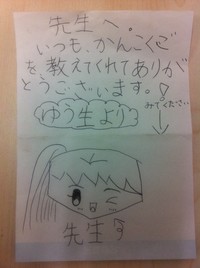 先生へ。
いつも、かんこくご
を教えてくれてありが
とうございます。!
みてください
ゆう生より
先生